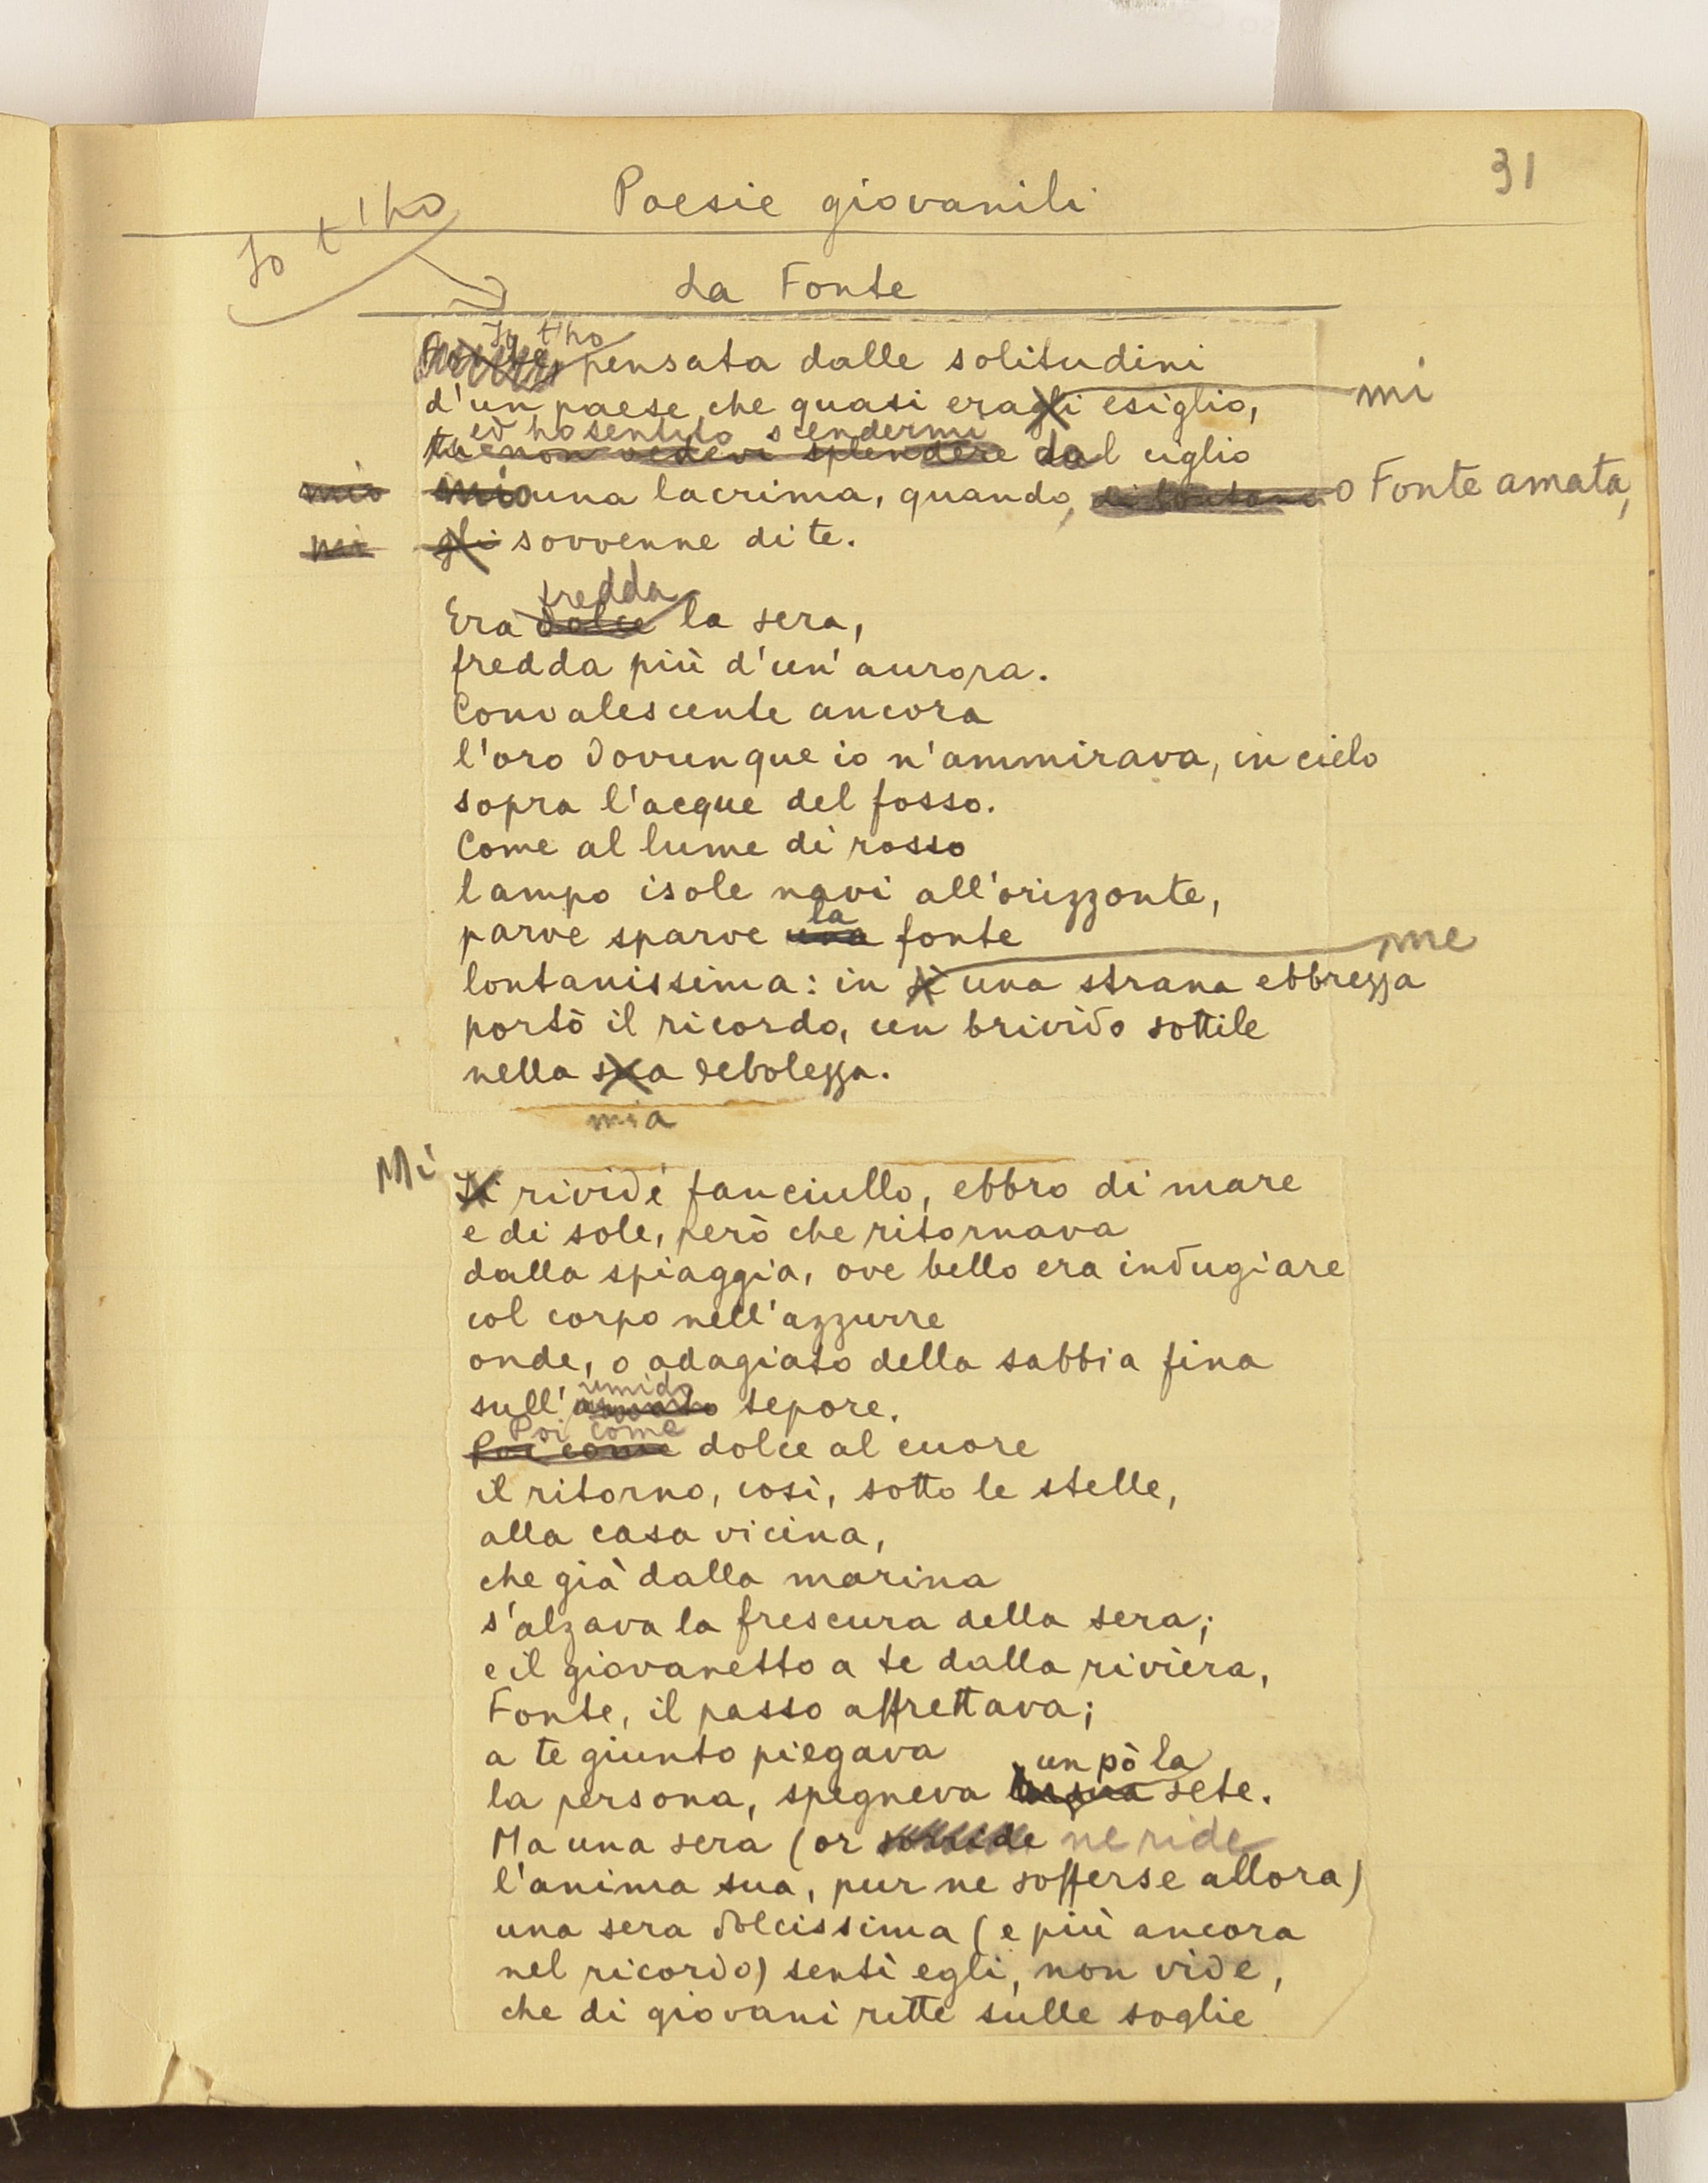 31
Poesie giovanili
Io t'ho
La Fonte
Io t'ho
pensata dalle solitudini
d'un paese che quasi eragli esiglio, mi
ed ho sentito scendermi
tu non vedevi splendere dal ciglio
mio mio una lacrima, quando, di lontano o Fonte amata,
mi gli sovvenne di te.
fredda
Era dolce la sera,
fredda più d'un'aurora.
Convalescente ancora
l'oro dovunque io n'ammirava, in cielo
sopra l'acque del fosso.
Come al lume di rosso
lampo isole navi all'orizzonte,
la
parve sparve una fonte
me
lontanissima: in sè una strana ebbrezza
portò il ricordo, un brivido sottile
nella sua debolezza.
mia
Mi
Si rividi fanciullo, ebbro di mare
e di sole, però che ritornava
dalla spiaggia, ove bello era indugiare
col corpo nell'azzurre
onde, o adagiato della sabbia fina
umido
sull' tepore.
Poi come
Poi come dolce al cuore
il ritorno, così, sotto le stelle,
alla casa vicina,
che già dalla marina
s'alzava la frescura della sera;
e il giovanetto a te dalla rivièra,
Fonte, il passo affrettava;
a te giunto piegava
un pò la
la persona, spegneva la sua sete.
Ma una sera (or sorride ne ride
l'anima sua, pur ne sofferse allora)
una sera dolcissima (e più ancora
nel ricordo) sentì egli, non vide,
che di giovani ritte sulle soglie